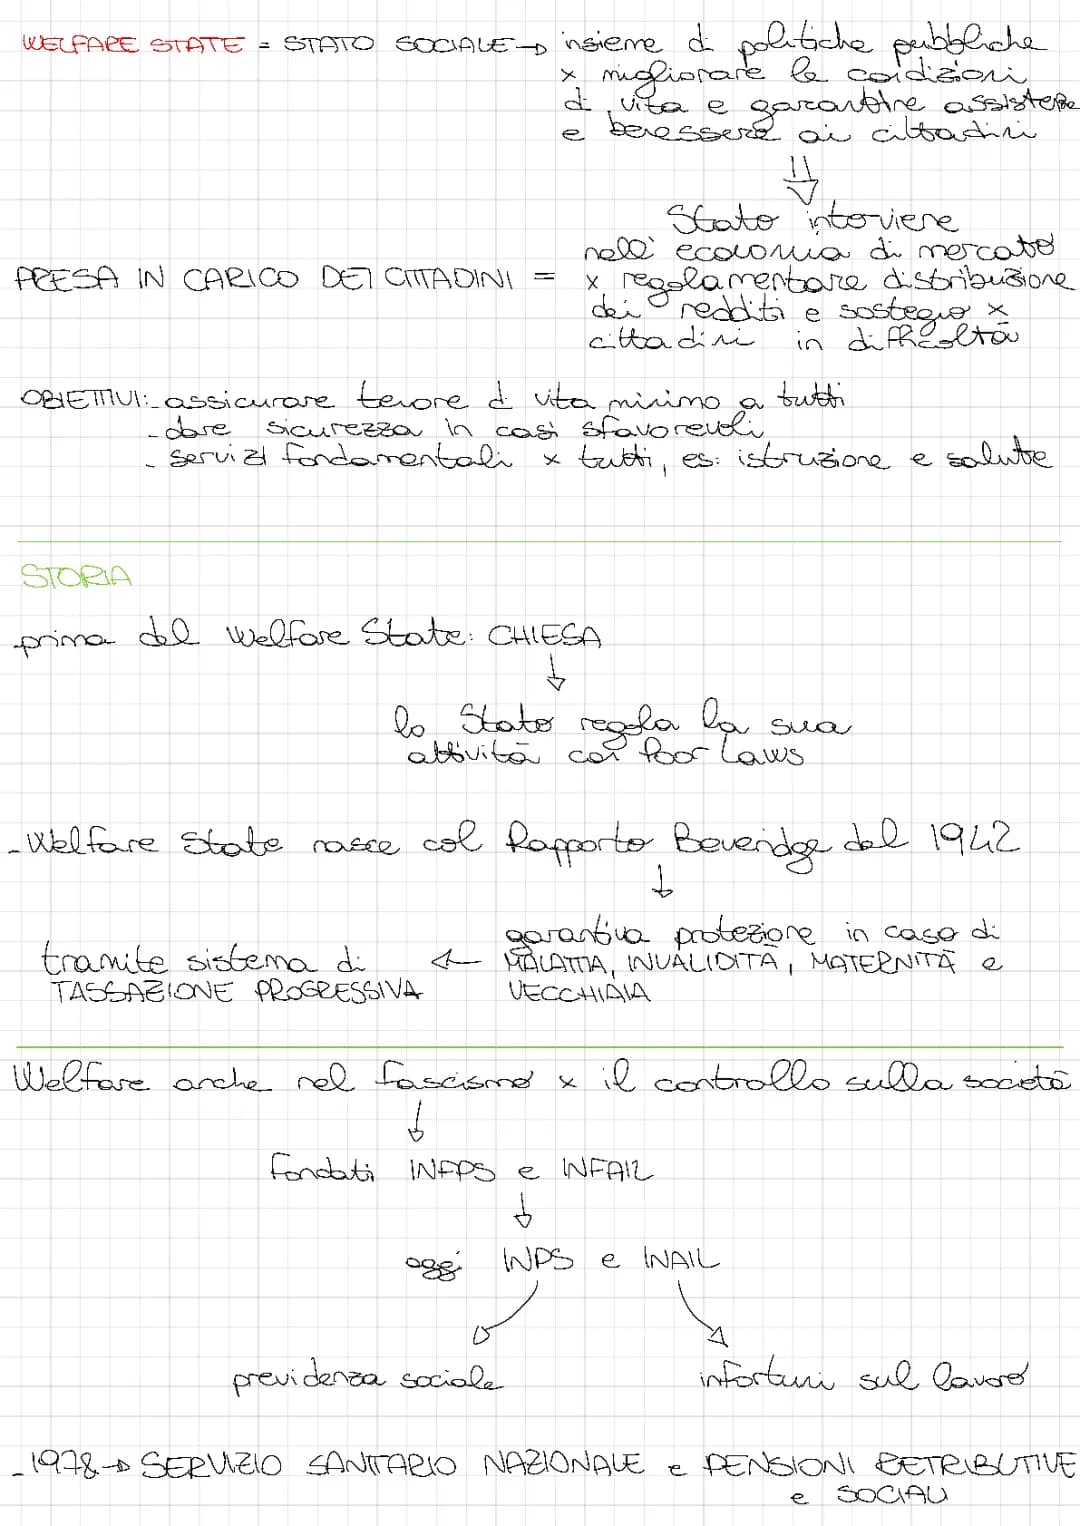 WELFARE STATE = STATO SOCIALE → insieme di politiche pubbliche
x migliorare le condizioni
di vita e garantire assistenza
e benessere ai cittadini
⇓
Stato interviene
nell'economia di mercato
PRESA IN CARICO DEI CITTADINI = x regolamentare distribuzione
dei redditi e sostegno x
cittadini in difficoltà
OBIETTIVI: - assicurare tenore di vita minimo a tutti
- dare sicurezza in casi sfavorevoli
- servizi fondamentali x tutti, es: istruzione e salute
STORIA
- prima del Welfare State: CHIESA
↓
lo Stato regola la sua
attività coi Poor Laws
- Welfare State nasce col Rapporto Beveridge del 1942
↓
garantiva protezione in caso di
tramite sistema di ← MALATTIA, INVALIDITÀ, MATERNITÀ e
TASSAZIONE PROGRESSIVA VECCHIAIA
Welfare anche nel fascismo x il controllo sulla società
↓
fondati INFPS e INFAIL
↓
oggi INPS e INAIL
previdenza sociale infortuni sul lavoro
- 1978 → SERVIZIO SANITARIO NAZIONALE e PENSIONI RETRIBUTIVE
e SOCIALI